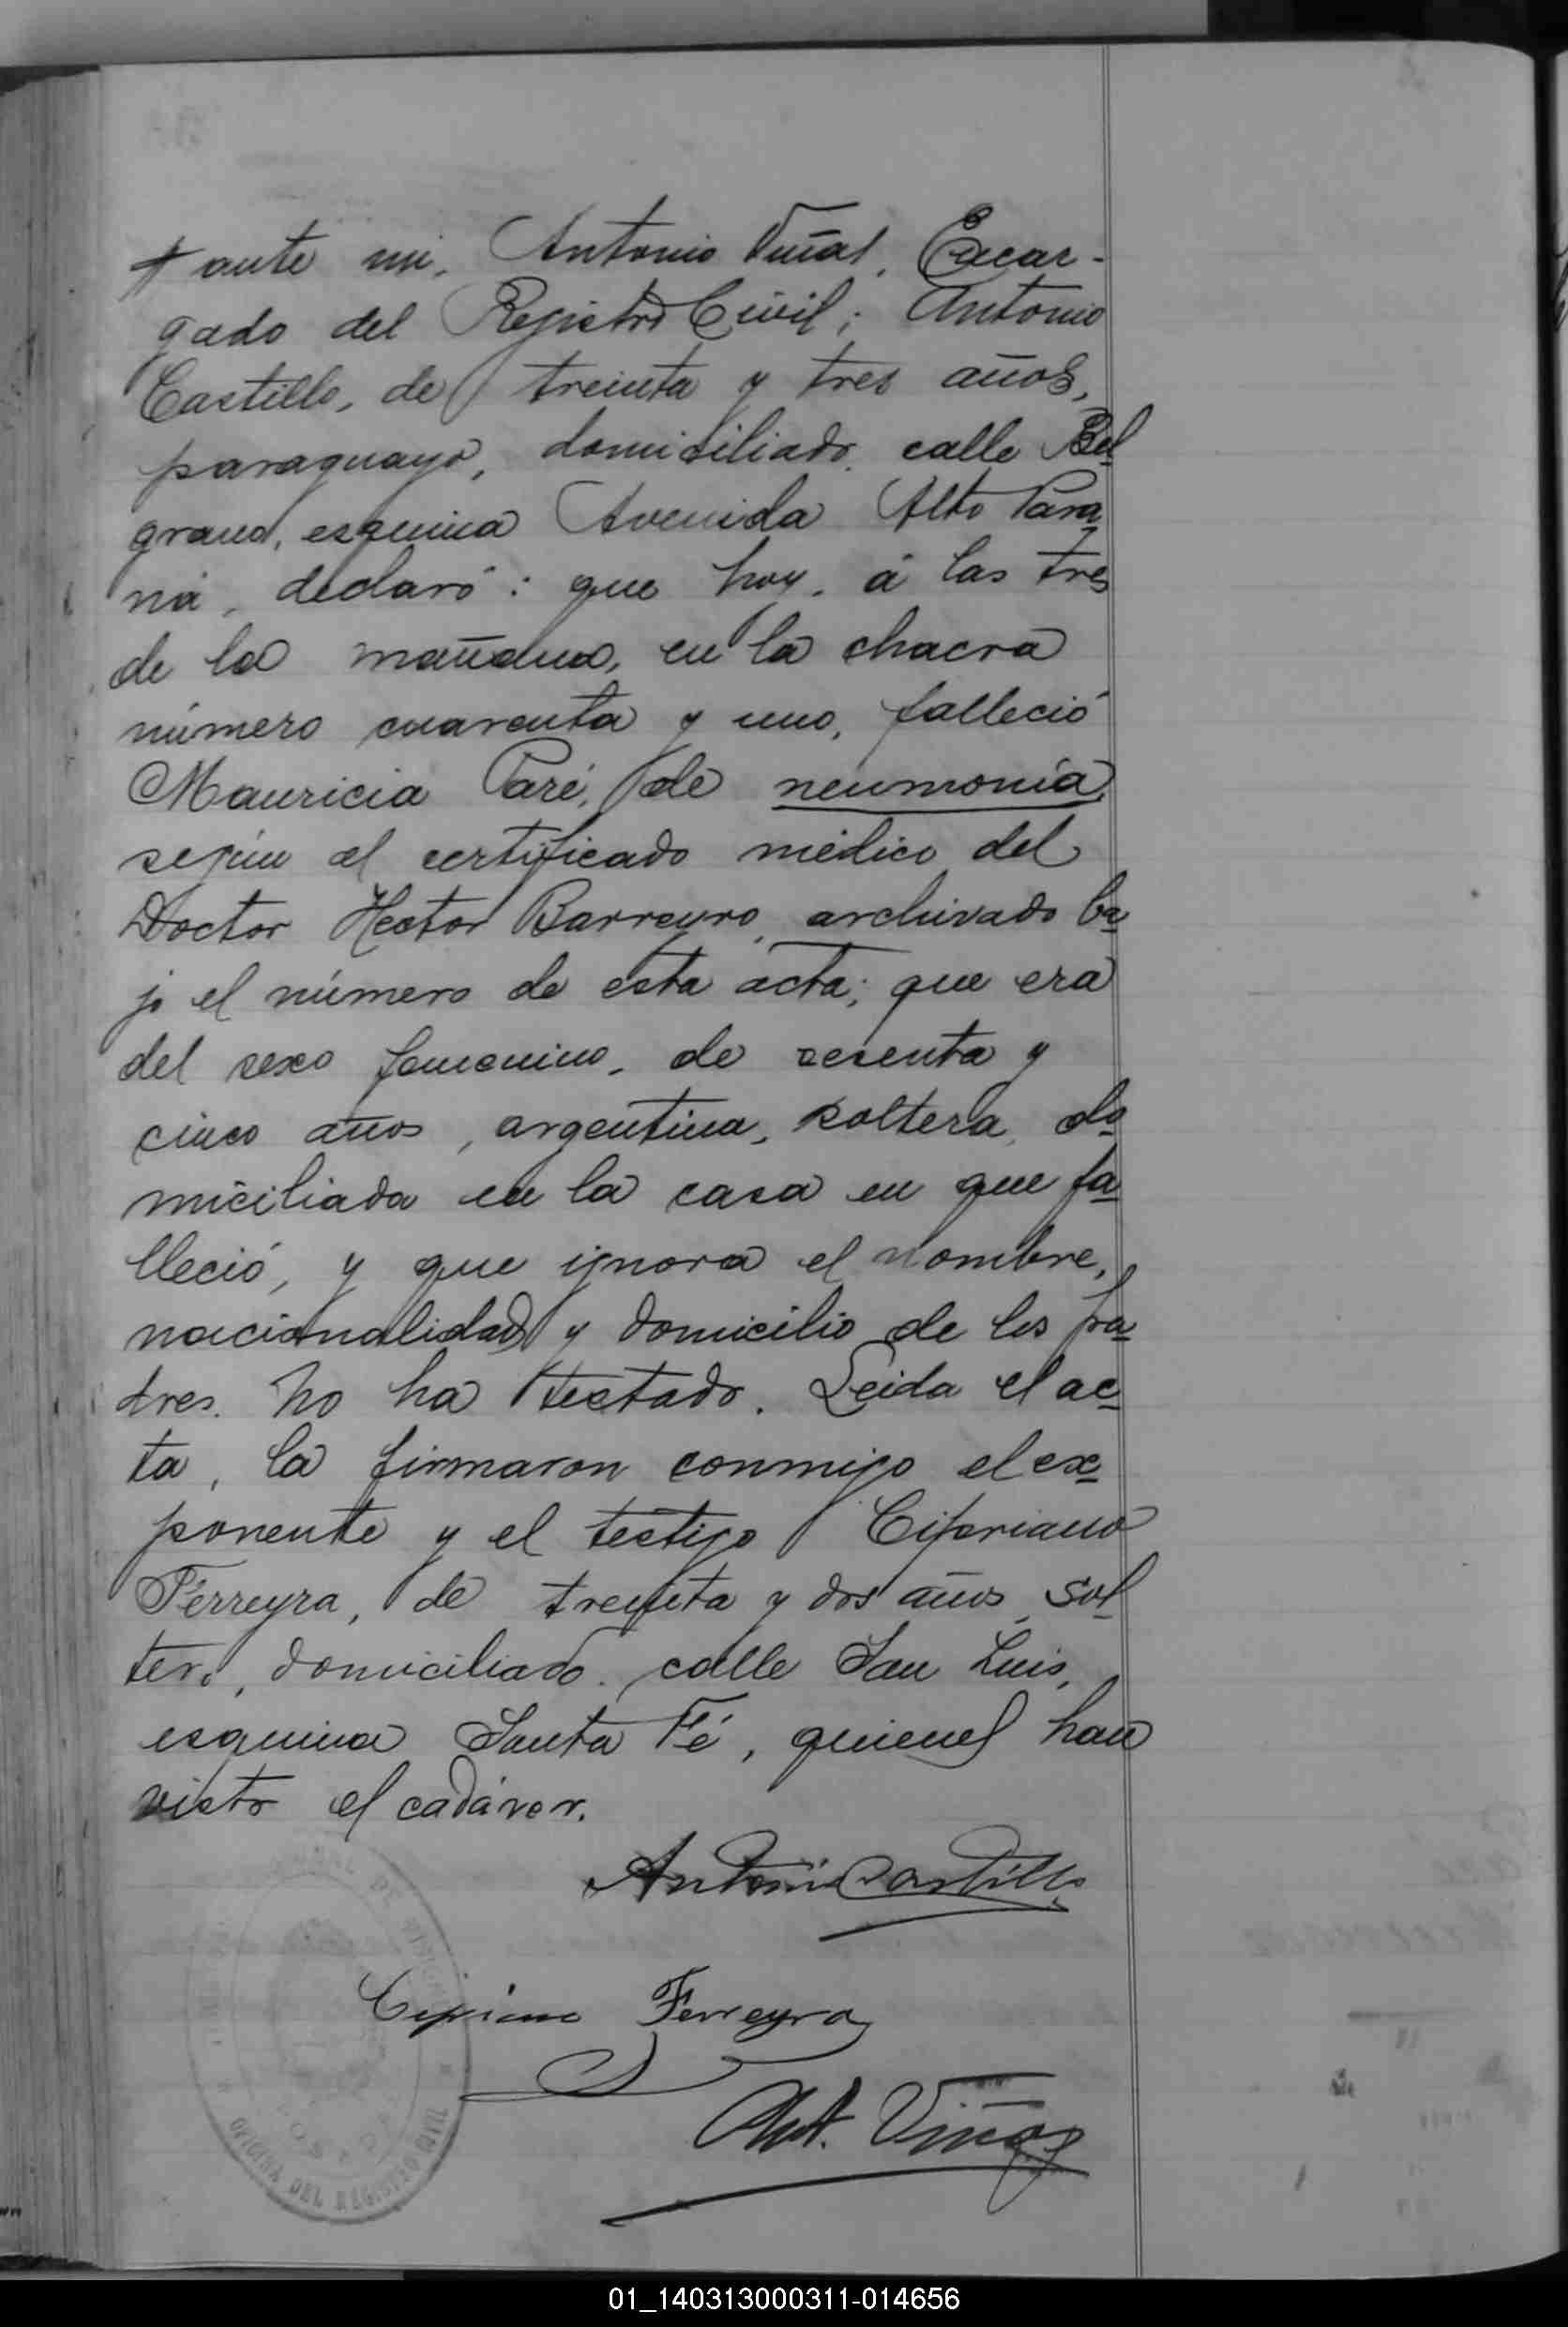 ante mi, Antonio Viñas, Encar-
gado del Registro Civil; Antonio
Castillo, de treinta y tres años,
paraguayo, domiciliado calle Bel
grano, esquina Avenida Alto Para
ná, declaró: que hoy, á las tres
de la mañana, en la chacra
número cuarenta y uno, falleció
Mauricia Paré, de neumonía
según el certificado médico del
Doctor Hector Barreyro, archivado ba
jo el número de esta acta; que era
del sexo femenino, de sesenta y
cinco años, argentina, soltera, do
miciliada en la casa en que fa
lleció, y que ignora el nombre,
nacionalidad y domicilio de los pa
dres. No ha testado. Leida el ac
ta, la firmaron conmigo el ex
ponente y el testigo Cipriano
Ferreyra, de treinta y dos años, sol
tero, domiciliado calle San Luis,
esquina Santa Fé, quienes han
visto el cadáver.
Antonio Castillo
Cipriano Ferreyra
Ant. Viñas
OFICINA DEL REGISTRO CIVIL
01_140313000311-014656